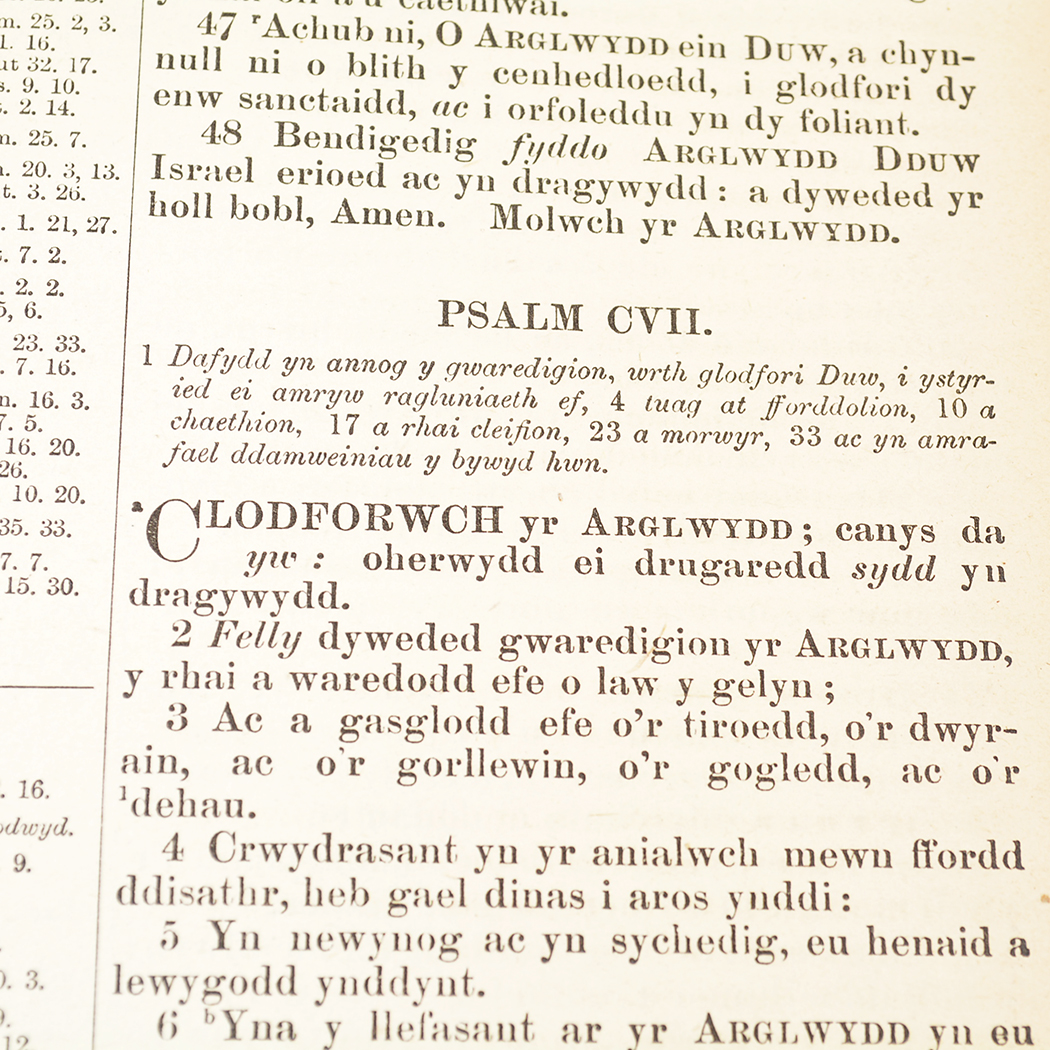 m. 25. 2, 3.
1. 16.
ut 32. 17.
s. 9. 10.
. 2. 14.
n. 25. 7.
. 20. 3, 13.
t. 3. 26.
. 1. 21, 27.
. 7. 2.
. 2. 2.
5, 6.
23. 33.
. 7. 16.
n. 16. 3.
7. 5.
16. 20.
26.
10. 20.
35. 33.
7. 7.
15. 30.
. 16.
odwyd.
9.
. 3.
12.
47 ʳAchub ni, O ARGLWYDD ein DUW, a chyn-
null ni o blith y cenhedloedd, i glodfori dy
enw sanctaidd, ac i orfoleddu yn dy foliant.
48 Bendigedig fyddo ARGLWYDD DDUW
Israel erioed ac yn dragywydd : a dyweded yr
holl bobl, Amen. Molwch yr ARGLWYDD.
PSALM CVII.
1 Dafydd yn annog y gwaredigion, wrth glodfori Duw, i ystyr-
ied ei amryw ragluniaeth ef, 4 tuag at fforddolion, 10 a
chaethion, 17 a rhai cleifion, 23 a morwyr, 33 ac yn amra-
fael ddamweiniau y bywyd hwn.
ᵃCLODFORWCH yr ARGLWYDD ; canys da
yw : oherwydd ei drugaredd sydd yn
dragywydd.
2 Felly dyweded gwaredigion yr ARGLWYDD,
y rhai a waredodd efe o law y gelyn ;
3 Ac a gasglodd efe o'r tiroedd, o'r dwyr-
ain, ac o'r gorllewin, o'r gogledd, ac o'r
¹dehau.
4 Crwydrasant yn yr anialwch mewn ffordd
ddisathr, heb gael dinas i aros ynddi :
5 Yn newynog ac yn sychedig, eu henaid a
lewygodd ynddynt.
6 ᵇYna y llefasant ar yr ARGLWYDD yn eu